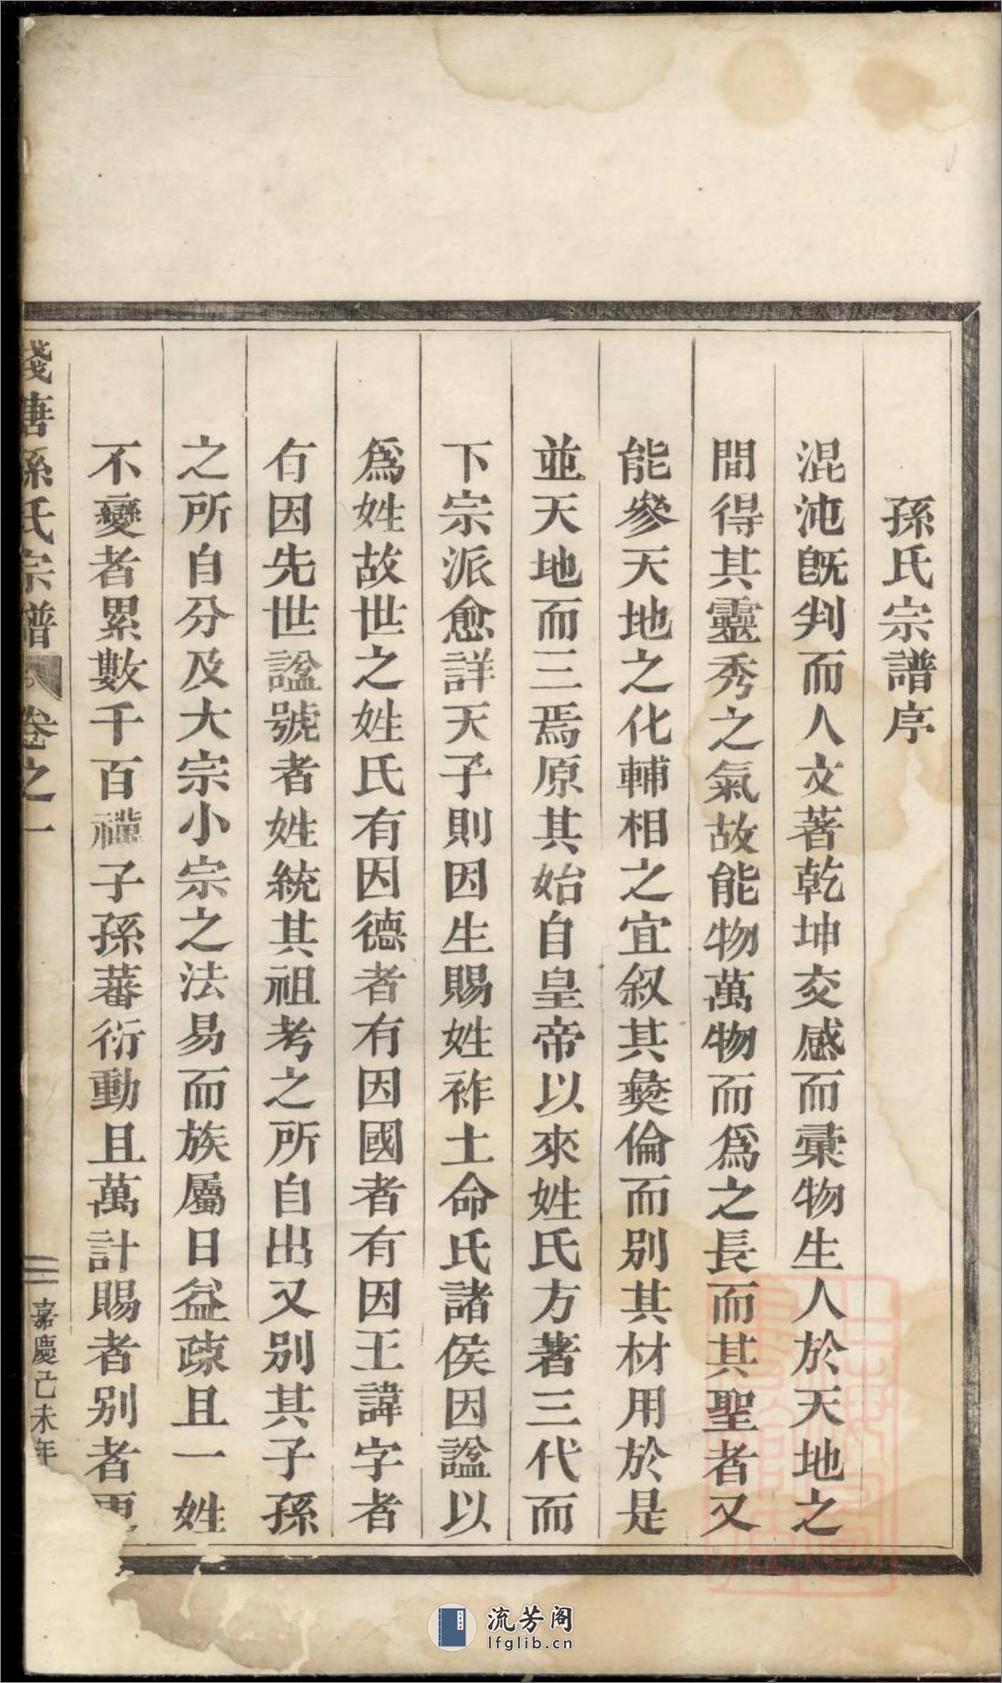 孫氏宗譜序
混沌旣判而人文著乾坤交感而彙物生人於天地之
間得其靈秀之氣故能物萬物而爲之長而其聖者又
能參天地之化輔相之宜叙其彛倫而別其材用於是
並天地而三焉原其始自皇帝以來姓氏方著三代而
下宗派愈詳天子則因生賜姓祚土命氏諸侯因諡以
爲姓故世之姓氏有因德者有因國者有因王諱字者
有因先世諡號者姓統其祖考之所自出又別其子孫
之所自分及大宗小宗之法易而族屬日益疎且一姓
不變者累數千百禩子孫蕃衍動且萬計賜者別者更
錢唐孫氏宗譜
卷之一
一
嘉慶己未年
流芳阁
lfglib.cn